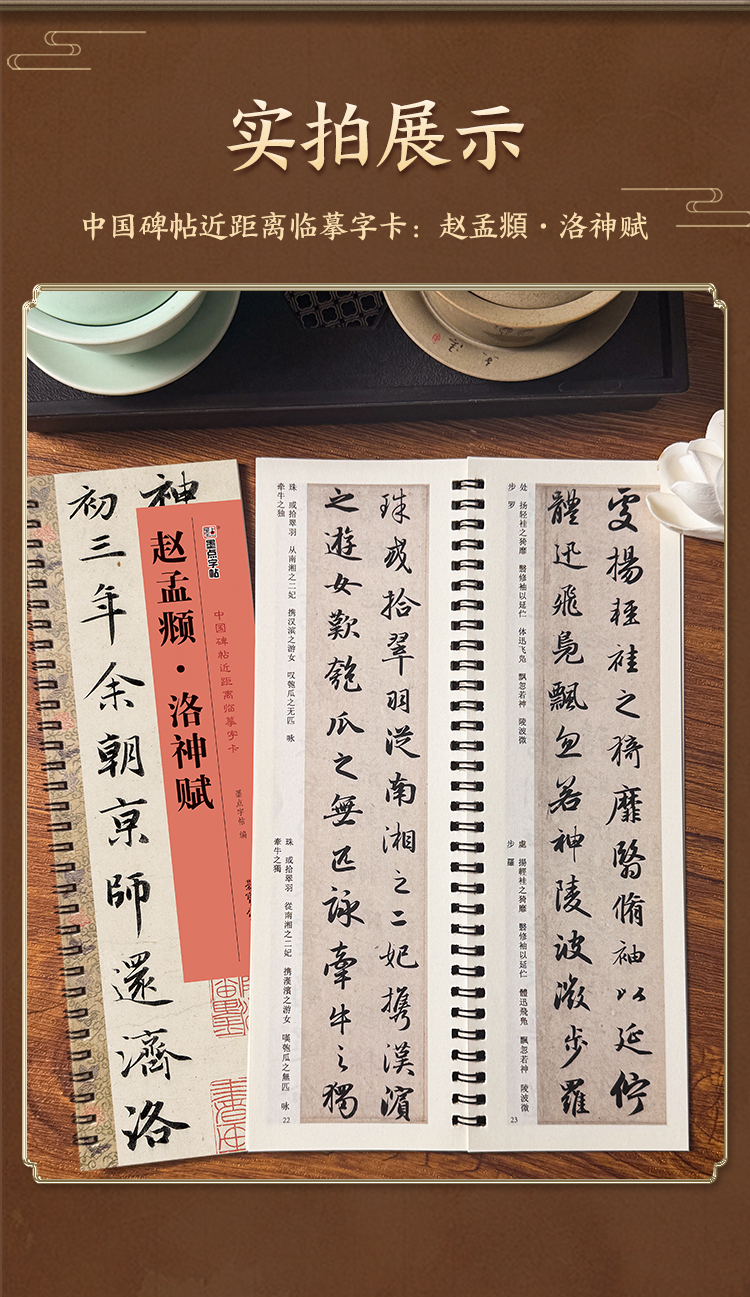 实拍展示
中国碑帖近距离临摹字卡：赵孟頫·洛神赋
神
初三年余朝京師還濟洛
墨点字帖
中国碑帖近距离临摹字卡
赵孟頫·洛神赋
墨点字帖 编
處揚輕袿之猗靡翳脩袖以延佇
體迅飛鳧飄忽若神陵波微步羅
处 扬轻袿之猗靡 翳修袖以延伫 体迅飞凫 飘忽若神 陵波微
步 罗
處 揚輕袿之猗靡 翳修袖以延佇 體迅飛鳧 飄忽若神 陵波微
步 羅
23
珠或拾翠羽從南湘之二妃携漢濱
之遊女歎匏瓜之無匹詠牽牛之獨
珠 或拾翠羽 从南湘之二妃 携汉滨之游女 叹匏瓜之无匹 咏
牵牛之独
珠 或拾翠羽 從南湘之二妃 携漢濱之游女 嘆匏瓜之無匹 咏
牽牛之獨
22